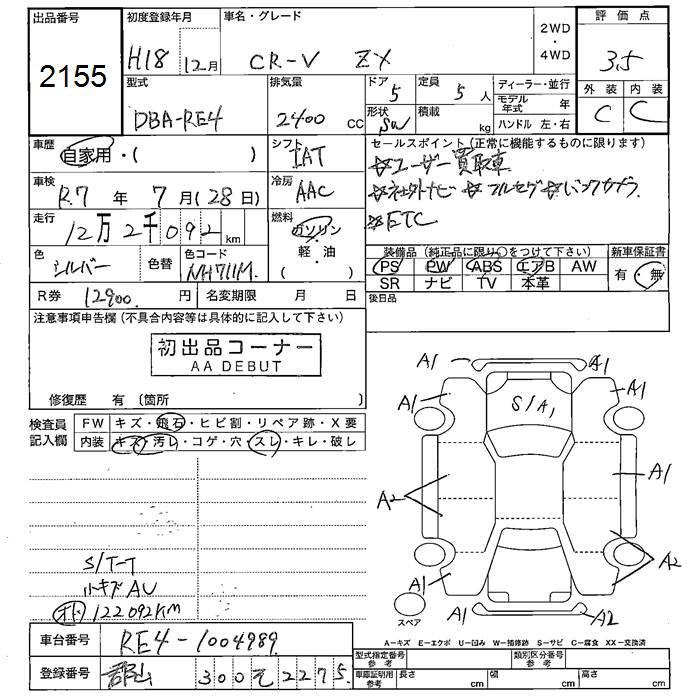 出品番号
2155
初度登録年月
H18 12月
車名・グレード
CR-V ZX
2WD
・
4WD
評価点
3.5
外装 内装
C C
型式
DBA-RE4
排気量
2400 cc
ドア
5
形状
SW
定員
5 人
積載
kg
ディーラー・並行
モデル年式 年
ハンドル 左・右
車歴
自家用・( )
シフト
IAT
車検
R.7 年 7 月(28 日)
冷房
AAC
走行
12万2千092 km
燃料
ガソリン
軽・油
( )
色
シルバー
色替
色コード
NH711M
R券 12900. 円
名変期限 月 日
セールスポイント(正常に機能するものに限ります)
☆ユーザー買取車
☆社外ナビ ☆フルセグ ☆バックカメラ
☆ETC
装備品(純正品に限り○をつけて下さい)
PS PW ABS エアB AW
SR ナビ TV 本革
新車保証書
有・無
後日品
注意事項申告欄(不具合内容等は具体的に記入して下さい)
初出品コーナー
AA DEBUT
修復歴 有〔箇所 〕
検査員
記入欄
FW キズ・飛石・ヒビ割・リペア跡・X要
内装 キズ・汚レ・コゲ・穴・スレ・キレ・破レ
S/T-T
小キズ AU
オド 122092KM
A1 A1
A1 A1
S/A1
A2 A1
A1 A2
A1 A2
スペア
A-キズ E-エクボ U-凹み W-補修跡 S-サビ C-腐食 XX-交換済
車台番号 RE4-1004989
登録番号 郡山 300 そ 2275
型式指定番号
参考
類別区分番号
参考
車庫証明用
参考
長さ cm 幅 cm 高さ cm